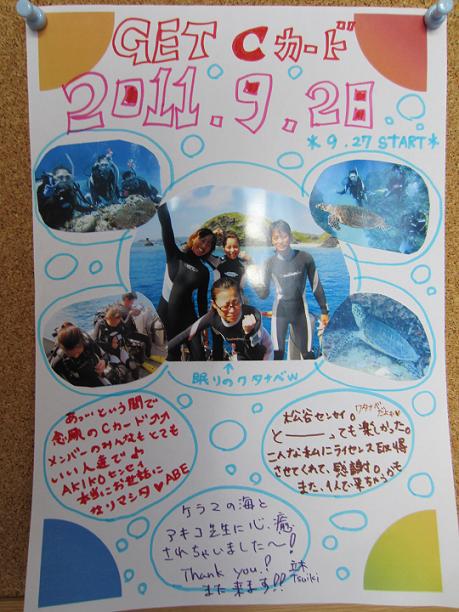 GET Cカード
2011.9.28
*9.27 START*
↑
眠りのワタナベw
あっ…という間で
念願のCカード↗↗
メンバーのみんなもとても
いい人達で♪
AKIKOセンセイ
本当にお世話に
なりマシタ♥ABE
松谷センセイ。
と———っても楽しかった。
こんな私にライセンス取得
させてくれて、感謝す。
また、1人で来ちゃうかも
ケラマの海と
アキコ先生に心、癒
されちゃいました〜!
Thank you!
また来ます!!
Tsuiki